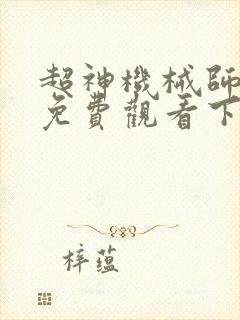 超神機械師
免費觀看下
梓蘊